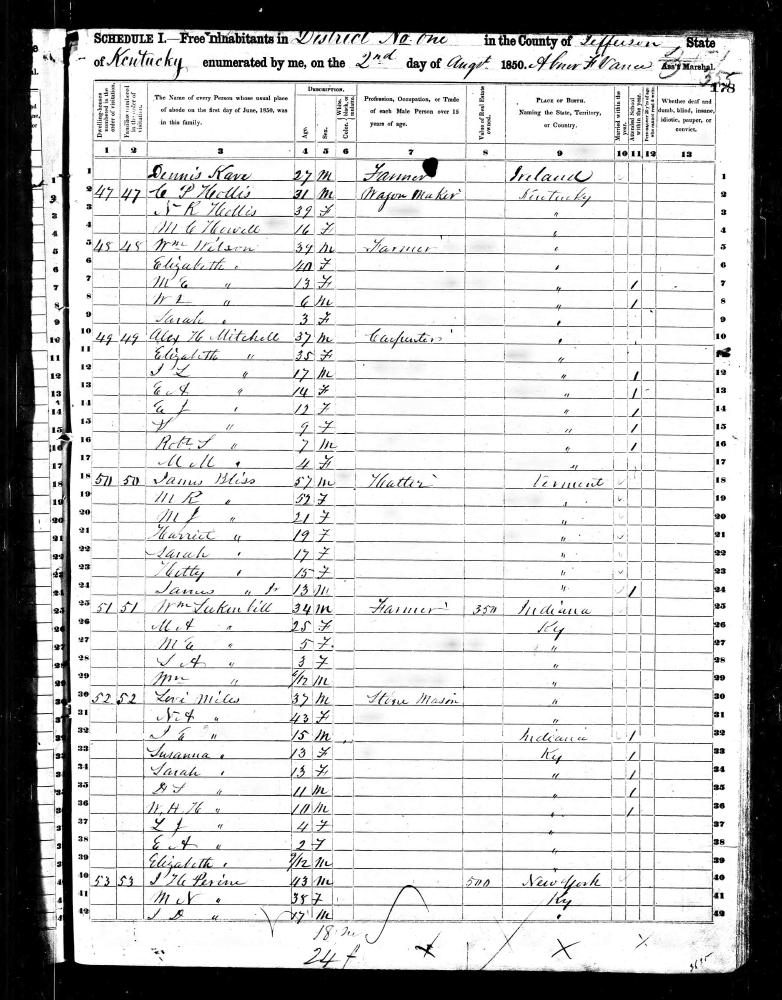 SCHEDULE I.—Free Inhabitants in District No. One in the County of Jefferson State
of Kentucky enumerated by me, on the 2nd day of Augt 1850. Abner F Vance Ass't Marshal.
178
DESCRIPTION.
Dwelling-houses numbered in the order of visitation.
Families numbered in the order of visitation.
The Name of every Person whose usual place of abode on the first day of June, 1850, was in this family.
Age.
Sex.
Color. White, black, or mulatto.
Profession, Occupation, or Trade of each Male Person over 15 years of age.
Value of Real Estate owned.
PLACE OF BIRTH. Naming the State, Territory, or Country.
Married within the year.
Attended School within the year.
Whether deaf and dumb, blind, insane, idiotic, pauper, or convict.
1 2 3 4 5 6 7 8 9 10 11 12 13
1 Dennis Kave 27 M Farmer Ireland 1
2 47 47 C P Hollis 31 M Wagon Maker Kentucky 2
3 N R Hollis 39 F " 3
4 M C Howell 16 F " 4
5 48 48 Wm Wilson 39 M Farmer " 5
6 Elizabeth " 40 F " 6
7 M E " 13 F " / 7
8 W L " 6 M " / 8
9 Sarah " 3 F " 9
10 49 49 Alex H Mitchell 37 M Carpenter " 10
11 Elizabeth " 35 F " 11
12 J L " 17 M " / 12
13 E A " 14 F " / 13
14 E J " 12 F " / 14
15 " 9 F " / 15
16 Robt S " 7 M " / 16
17 M M " 4 F " 17
18 50 50 James Bliss 57 M Hatter Vermont 18
19 M R " 52 F " 19
20 M J " 21 F " 20
21 Harriet " 19 F " 21
22 Sarah " 17 F " 22
23 Hetty " 15 F " 23
24 James " Jr 13 M " / 24
25 51 51 Wm Lukenbill 34 M Farmer 350 Indiana 25
26 M A " 25 F Ky 26
27 M E " 5 F " 27
28 S A " 3 F " 28
29 Wm " /12 M " 29
30 52 52 Levi Miles 37 M Stone Mason " 30
31 N A " 43 F " 31
32 J E " 15 M Indiana / 32
33 Susanna " 13 F Ky / 33
34 Sarah " 13 F " / 34
35 D S " 11 M " / 35
36 W. H. H " 10 M " / 36
37 L J " 4 F " 37
38 E A " 2 F " 38
39 Elizabeth " 9/12 M " 39
40 53 53 J H Perine 43 M 500 New York 40
41 M N " 38 F Ky 41
42 J D " 17 M " 42
18 m
24 f